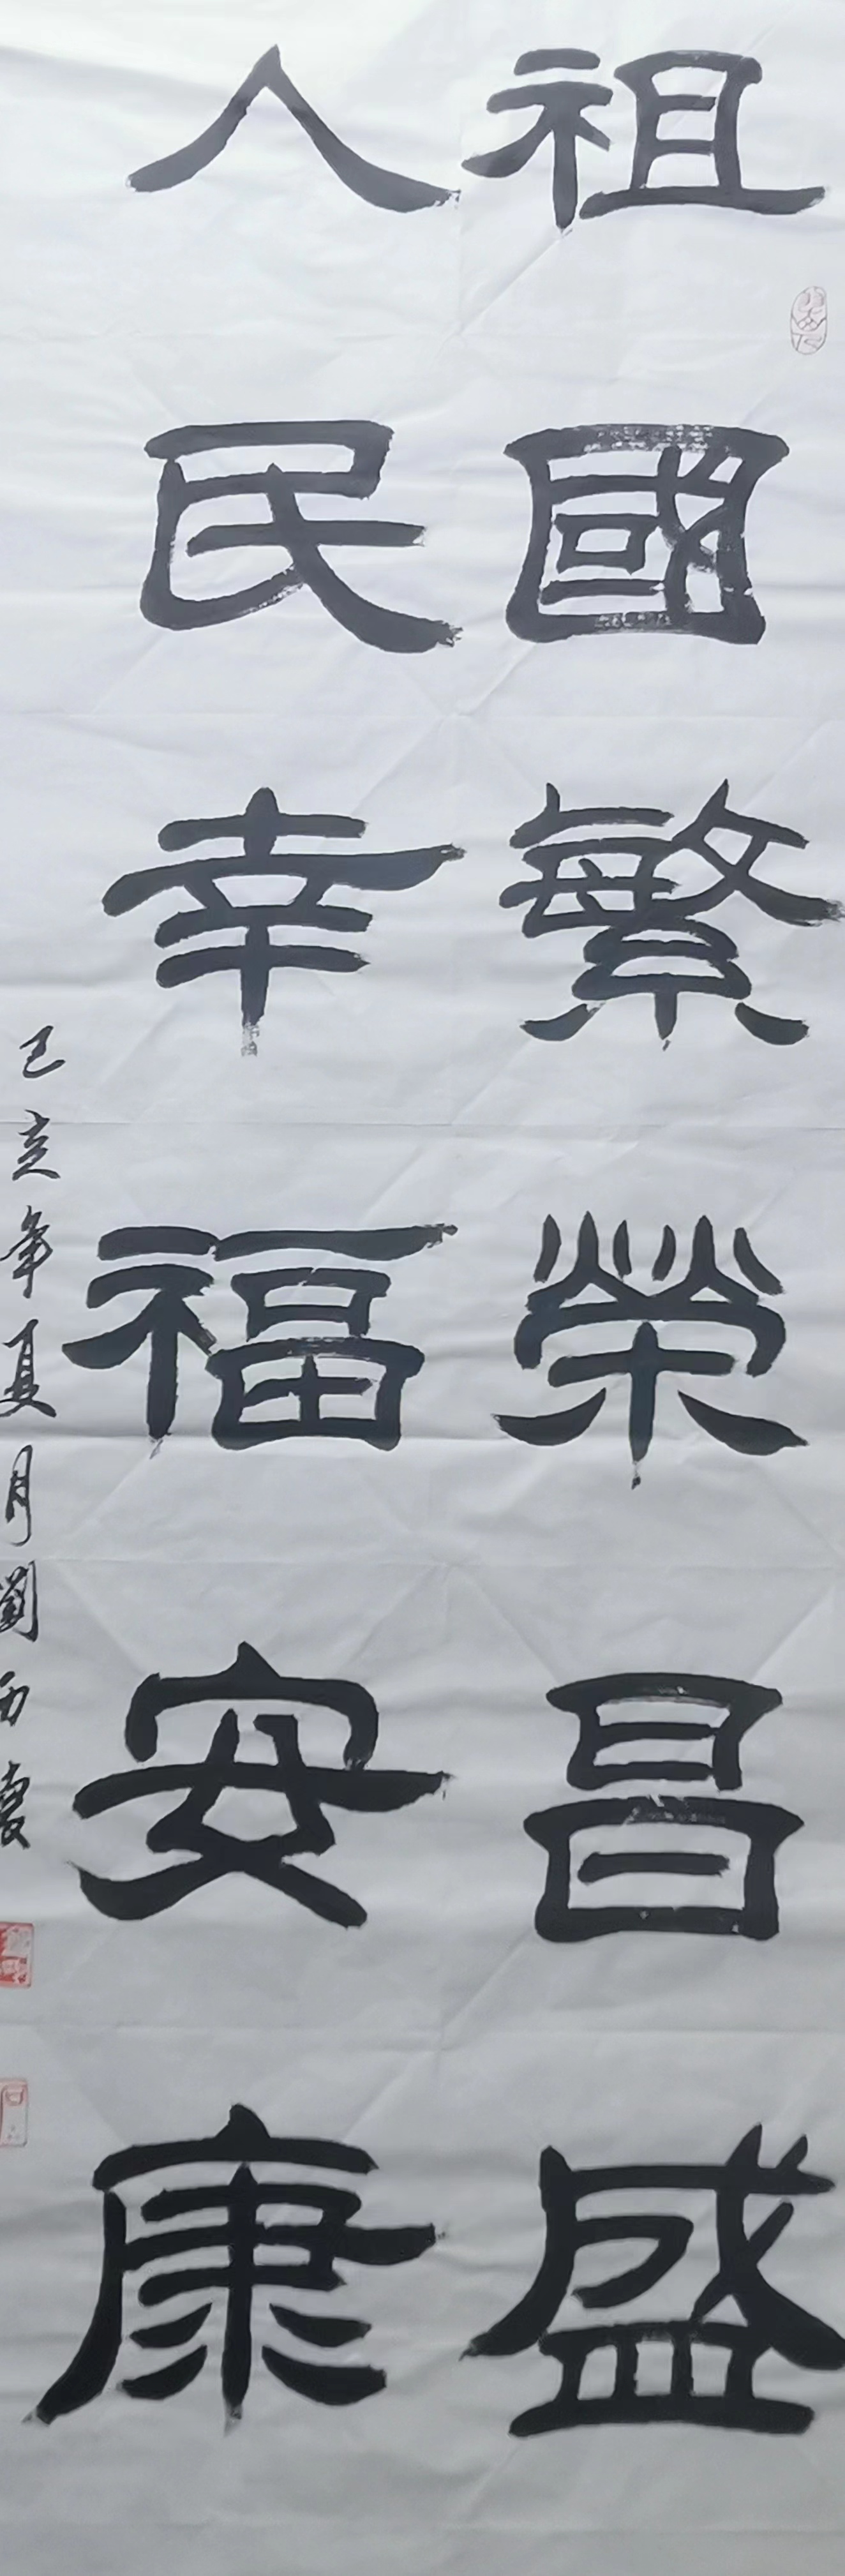 祖國繁榮昌盛
人民幸福安康
己亥年夏月劉